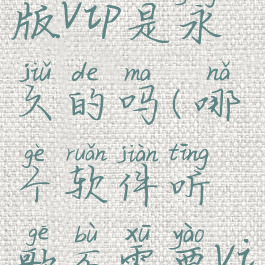 版VIP是永
jiǔ de ma nǎ
久的吗(哪
gè ruǎn jiàn tīng
个软件听
gē bù xū yào
歌不需要Vi